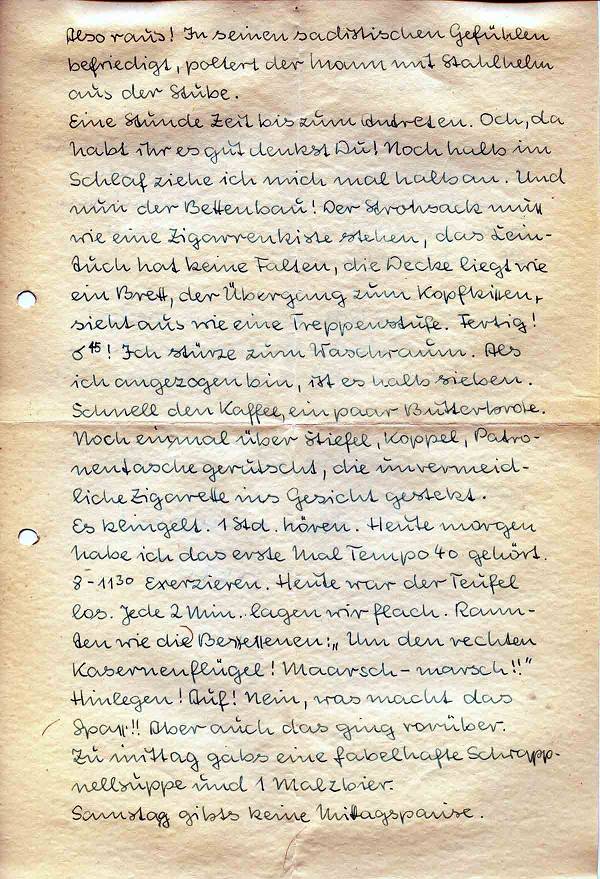 Also raus! In seinen sadistischen Gefühlen
befriedigt, poltert der Mann mit Stahlhelm
aus der Stube.
Eine Stunde Zeit bis zum Antreten. Och, da
habt ihr es gut denkst Du! Noch halb im
Schlaf ziehe ich mich mal halb an. Und
nun der Bettenbau! Der Strohsack muß
wie eine Zigarrenkiste stehen, das Lein-
tuch hat keine Falten, die Decke liegt wie
ein Brett, der Übergang zum Kopfkissen,
sieht aus wie eine Treppenstufe. Fertig!
6⁴⁵! Ich stürze zum Waschraum. Als
ich angezogen bin, ist es halb sieben.
Schnell den Kaffee, ein paar Butterbrote.
Noch einmal über Stiefel, Koppel, Patro-
nentasche gerutscht, die unvermeid-
liche Zigarette ins Gesicht gesteckt.
Es klingelt. 1 Std. hören. Heute morgen
habe ich das erste Mal Tempo 40 gehört.
8-11³⁰ Exerzieren. Heute war der Teufel
los. Jede 2 Min. lagen wir flach. Rann-
ten wie die Besessenen: „Um den rechten
Kasernenflügel! Maarsch-marsch!!"
Hinlegen! Auf! Nein, was macht das
Spaß!! Aber auch das ging vorüber.
Zu mittag gabs eine fabelhafte Schrapp-
nellsuppe und 1 Malzbier.
Samstag gibts keine Mittagspause.